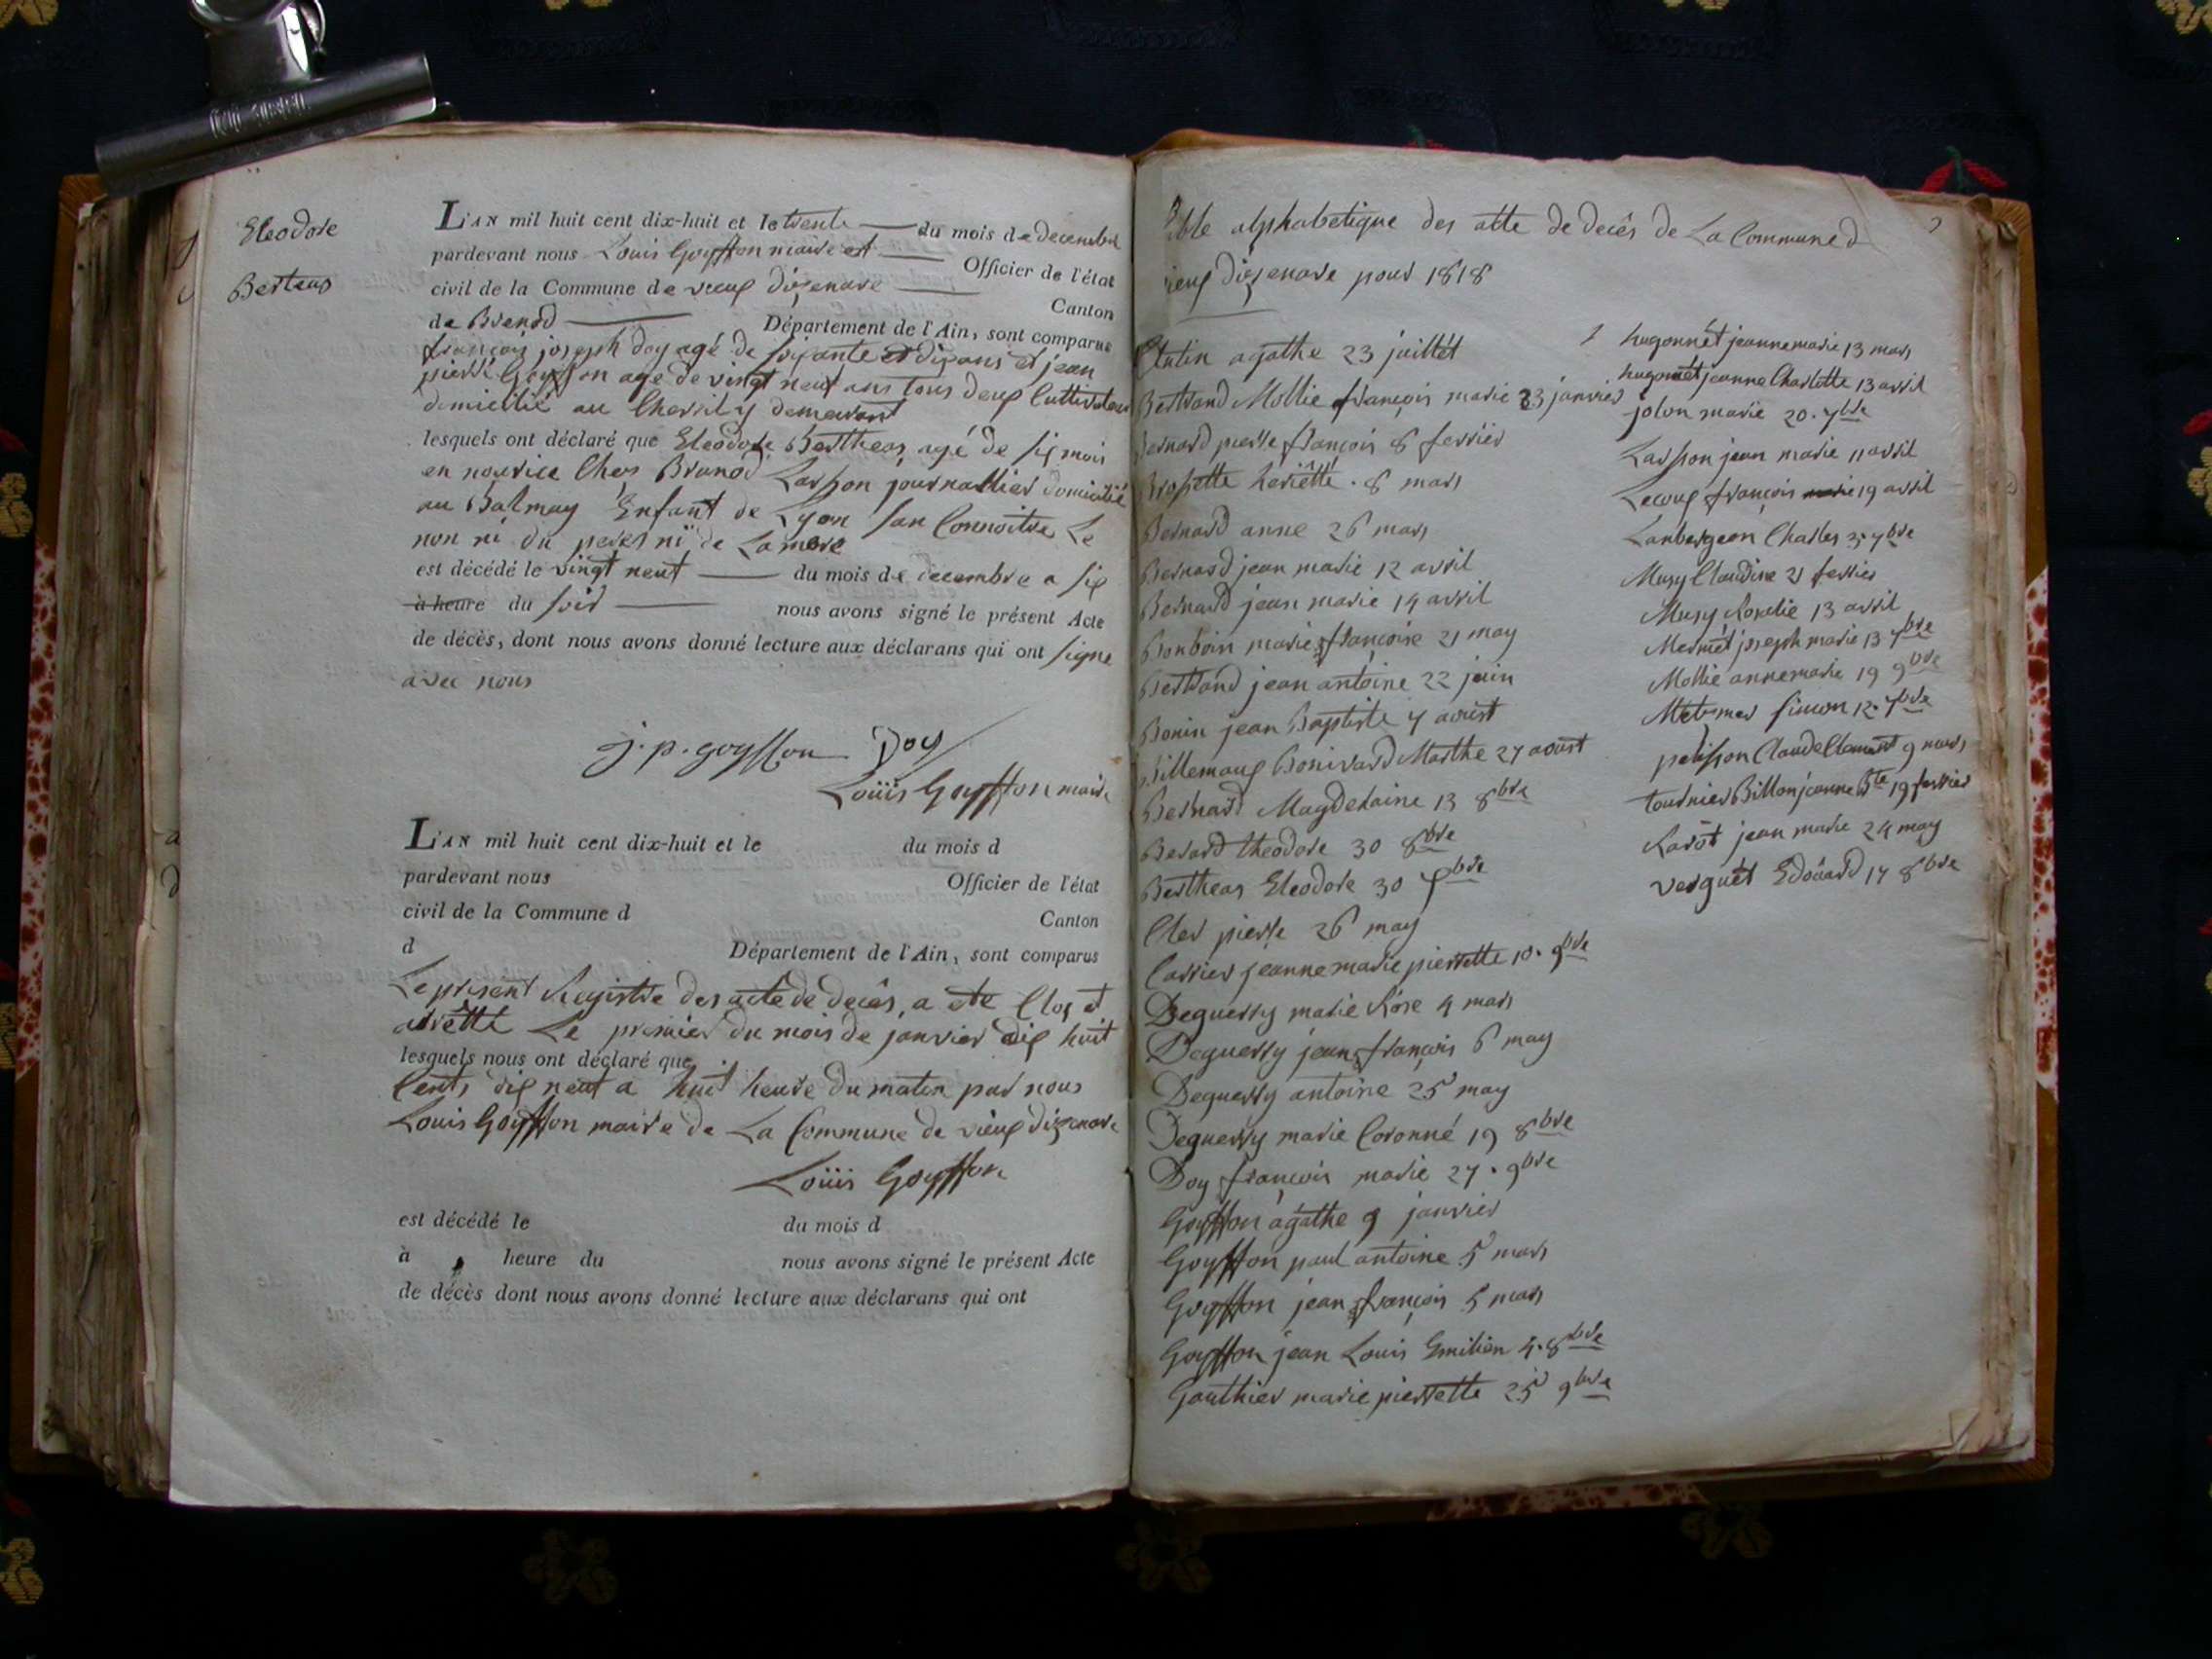 Eleodore
Berteas
L'AN mil huit cent dix-huit et le trente du mois de decembre
pardevant nous Louis Goyffon maire et Officier de l'état
civil de la Commune de vieux dizenave Canton
de Brenod Département de l'Ain, sont comparus
françois joseph doy agé de soixante et dix ans et jean
pierre Goyffon age de vingt neuf ans tous deux Cultivateur
domicilié au Chevrily demeurant
lesquels ont déclaré que Eleodore Bertheas agé de six mois
en nourice Chez Brunod Larsson journallier domicilié
au Balmay Enfant de Lyon san Connoitre Le
non ni du peres ni de La mere
est décédé le vingt neuf du mois de decembre a six
à heure du soir nous avons signé le présent Acte
de décès, dont nous avons donné lecture aux déclarans qui ont signe
avec nous
j. p. goyffon Doy
Louis Goyffon maire
L'AN mil huit cent dix-huit et le du mois d
pardevant nous Officier de l'état
civil de la Commune d Canton
d Département de l'Ain, sont comparus
Le present Registre des acte de decès, a ete Clos et
arrêtté Le premier du mois de janvier dix huit
lesquels nous ont déclaré que
Cents dix neuf a huit heure du matin par nous
Louis Goyffon maire de La Commune de vieux dizenave
Louis Goyffon
est décédé le du mois d
à heure du nous avons signé le présent Acte
de décès dont nous avons donné lecture aux déclarans qui ont
alphabetique des atte de decês de La Commune d
vieux dizenave pour 1818
agathe 23 juillét
Bertrand Mollie françois marie 23 janvier
Bernard pierre françois 8 fevrier
Brossette hériétté . 8 mars
Bernard anne 26 mars
Bernard jean marie 12 avril
Bernard jean marie 14 avril
Bonboin marie françoise 21 may
Bertrand jean antoine 22 juin
Bonin jean Baptiste 7 aoust
Billemaux Bonivard Marthe 27 aoust
Bernard Magdelaine 13 8bre
Berard theodore 30 8bre
Bertheas Eleodore 30 Xbre
Cler pierre 26 may
Carrier jeanne marie pierrette 10 . 9bre
Deguerry marie Rose 4 mars
Deguerry jean françois 6 may
Deguerry antoine 25 may
Deguerry marie Coronné 19 8bre
Doy françois marie 27 . 9bre
Goyffon agathe 9 janvier
Goyffon paul antoine 5 mars
Goyffon jean françois 5 mars
Goyffon jean Louis Emilien 4 . 8bre
Gauthier marie pierrette 25 9bre
hugonnét jeanne marie 13 mars
hugonnét jeanne Charlotte 13 avril
jolon marie 20 . 7bre
Larsson jean marie 11 avril
Lecoux françois marie 19 avril
Lanbergeon Charles 3 . 7bre
Mury Claudine 21 fevrier
Mury Rosalie 13 avril
Mermét joseph marie 13 7bre
Mollie anne marie 19 9bre
simon 12 . 7bre
pelisson Claude Clement 9 mars
tournier Billon jeanne Bte 19 fevrier
Ravot jean marie 24 may
verguét Edouard 17 8bre